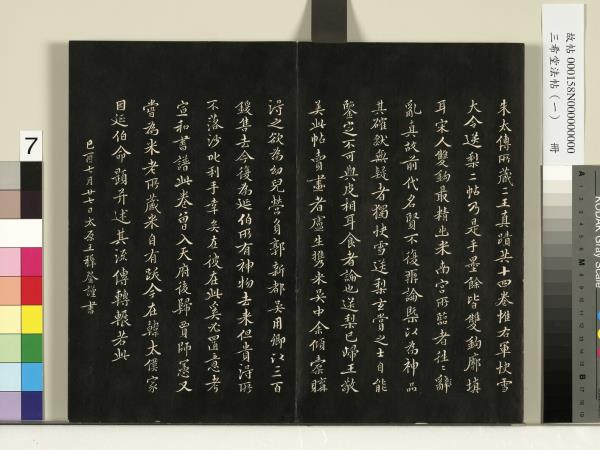 朱太傅所藏二王真蹟共十四卷惟右軍快雪
大令送梨二帖乃是手墨餘皆雙鉤廓填
耳宋人雙鉤最精出米南宮所臨者往往亂
真故前代名賢不復辨論槩以為神品
其確然無疑者獨快雪送梨玄賞之士自能
鑒之不可與皮相耳食者論也送梨已歸王敬
美此帖賣畫者盧生攜來吳中余傾橐購
得之欲為幼兒營負郭新都吳用卿以三百
鍰售去今復為延伯所有神物去來但貴得所
不落沙叱利手幸矣在彼在此奚足置意考
宣和書譜此卷曾入天府後歸賈師憲又
嘗為米老所藏米自有跋今在韓太僕家
因延伯命題并述其流傳轉輾若此
己酉七月廿七日太原王穉登謹書
7
故帖 000158N000000000
三希堂法帖（一） 冊
KODAK Gray Scale
A
M
B